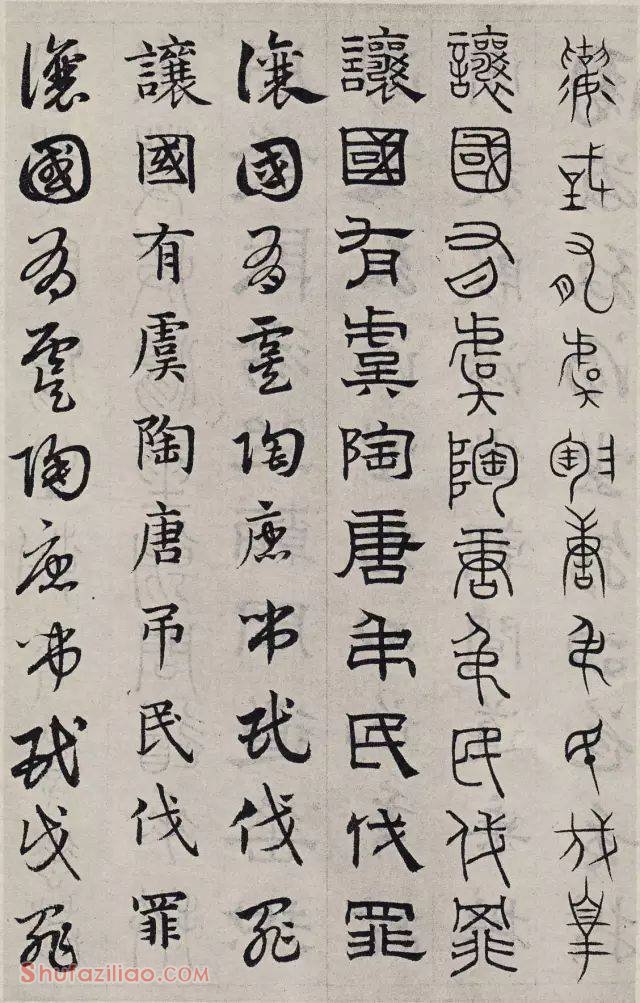 讓國有虞陶唐弔民伐罪
讓國有虞陶唐弔民伐罪
讓國有虞陶唐弔民伐罪
讓國有虞陶唐弔民伐罪
讓國有虞陶唐吊民伐罪
讓國有虞陶唐弔民伐罪
Shufaziliao.com